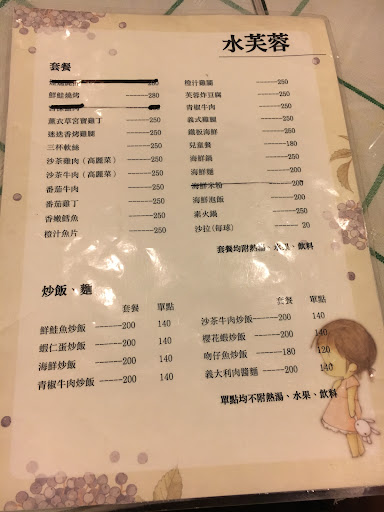 水芙蓉
套餐
鮮鮭燒烤 -------280
-250
薰衣草宮寶雞丁 -------250
迷迭香烤雞腿 -------250
三杯軟絲 -------250
沙茶雞肉(高麗菜) -------250
沙茶牛肉(高麗菜) -------250
番茄牛肉 -------250
番茄雞丁 -------250
香嫩鱈魚 -------250
橙汁魚片 -------250
橙汁雞腿 -------250
芙蓉炸豆腐 -------250
青椒牛肉 -------250
義式雞腿 -------250
鐵板海鮮 -------250
兒童餐 -------180
海鮮鍋 -------250
海鮮麵 -------200
海鮮米粉 -------200
海鮮泡飯 -------200
素火鍋 -------250
沙拉(每球) ------- 20
套餐均附熱湯、水果、飲料
炒飯、麵
套餐 單點
鮮鮭魚炒飯 -------200 140
蝦仁蛋炒飯 -------200 140
海鮮炒飯 -------200 140
青椒牛肉炒飯 -------200 140
套餐 單點
沙茶牛肉炒飯-------200 140
櫻花蝦炒飯 -------200 140
吻仔魚炒飯 -------180 120
義大利肉醬麵 -------200 140
單點均不附熱湯、水果、飲料